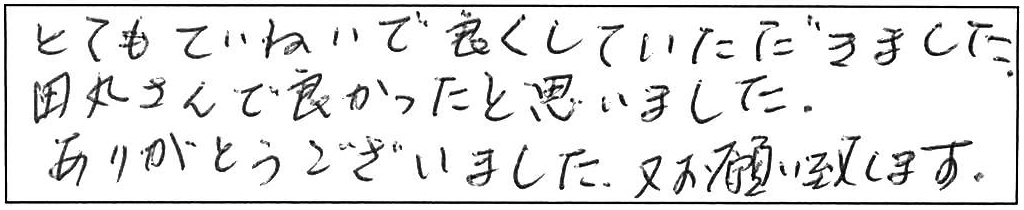 とてもていねいで良くしていただきました.
田丸さんで良かったと思いました.
ありがとうございました. 又お願い致します.